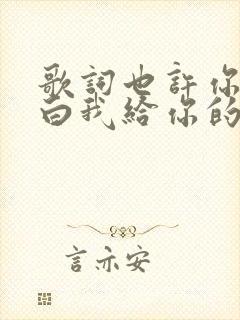 歌詞也許你
白我給你的
言亦安